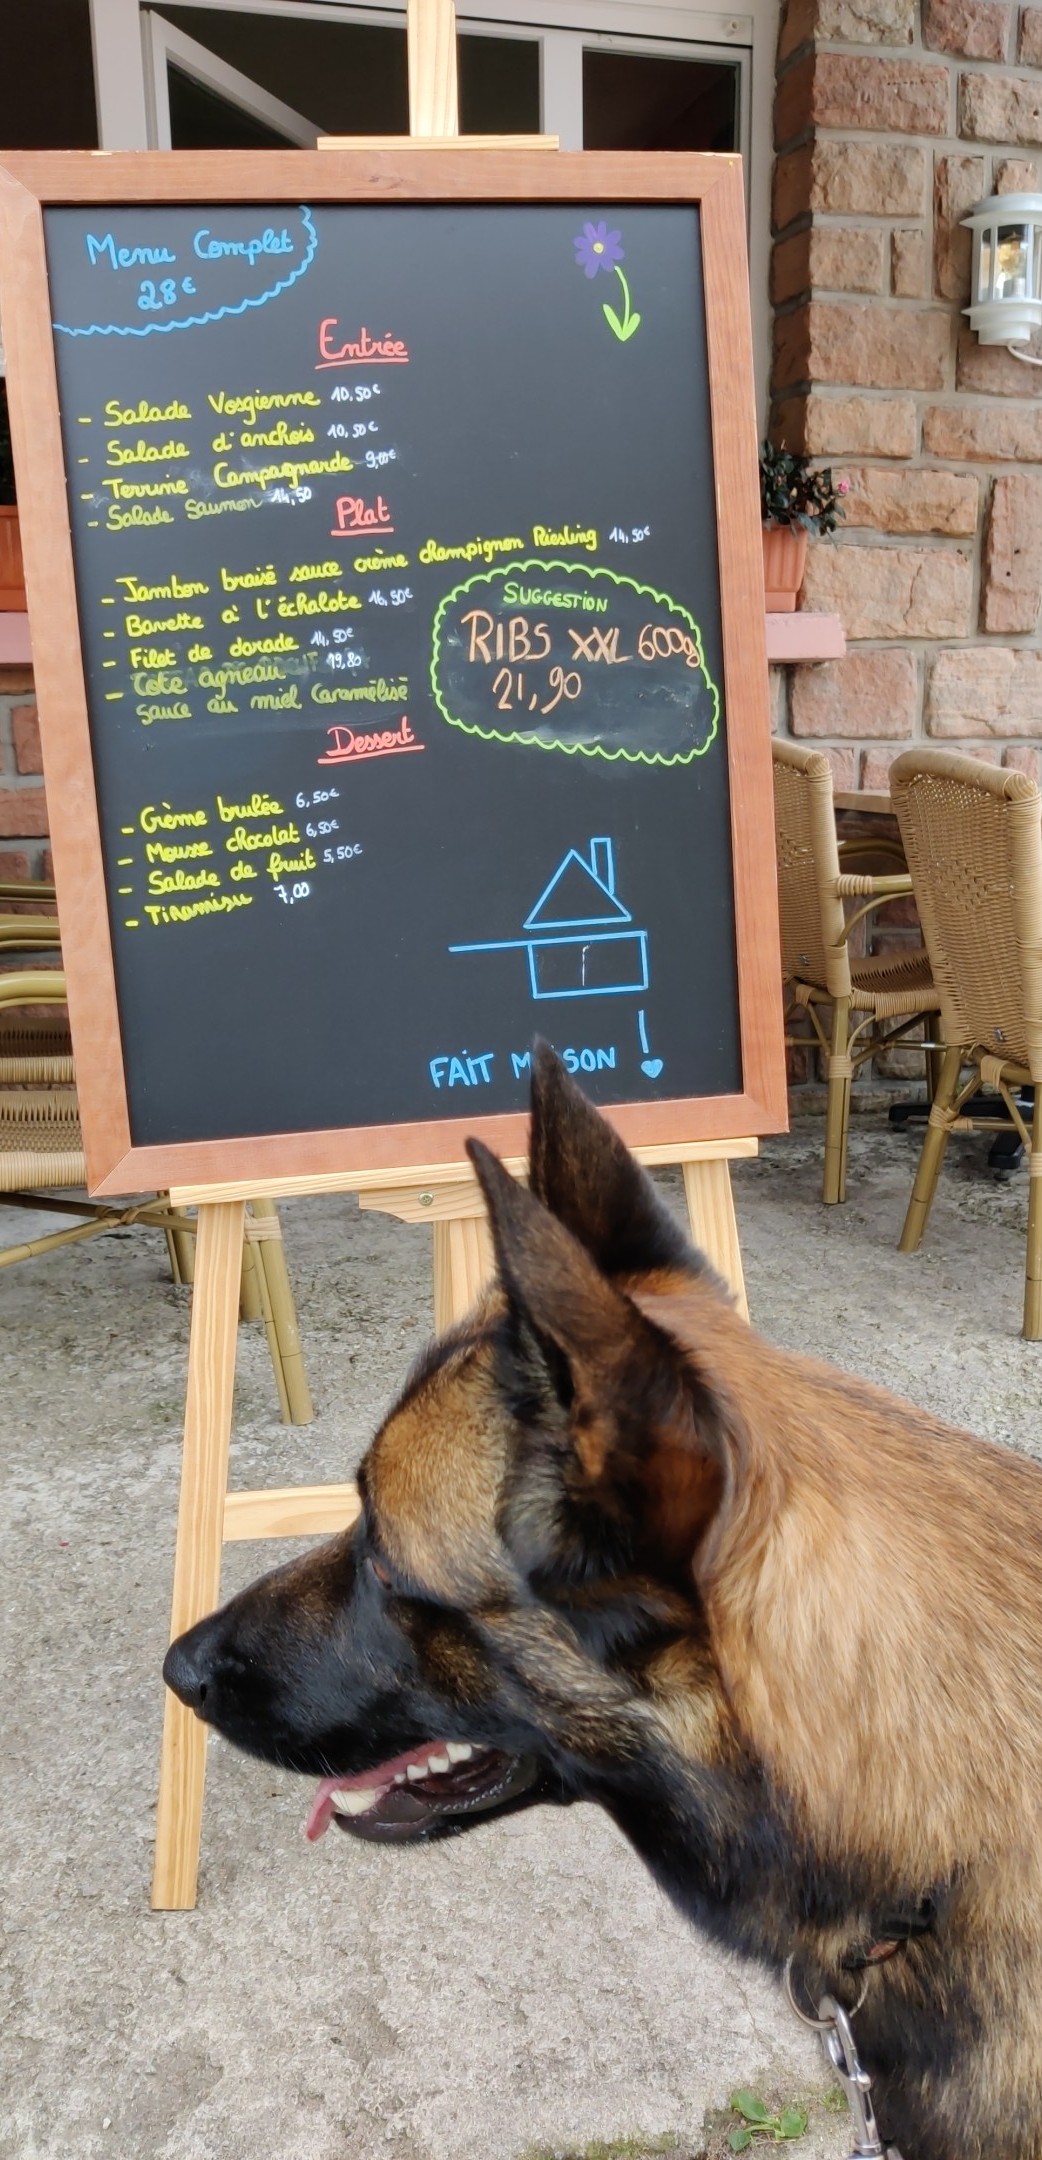 Menu Complet
28€
Entrée
- Salade Vosgienne 10,50€
- Salade d'anchois 10,50€
- Terrine Campagnarde 9,00€
- Salade Saumon 14,50
Plat
- Jambon braisé sauce crème champignon Riesling 14,50€
- Bavette à l'échalote 16,50€
- Filet de dorade 14,50€
- Cote agneau 19,80
sauce au miel Caramélisé
SUGGESTION
RIBS XXL 600g
21,90
Dessert
- Crème brulée 6,50€
- Mousse chocolat 6,50€
- Salade de fruit 5,50€
- Tiramisu 7,00
FAIT M SON !